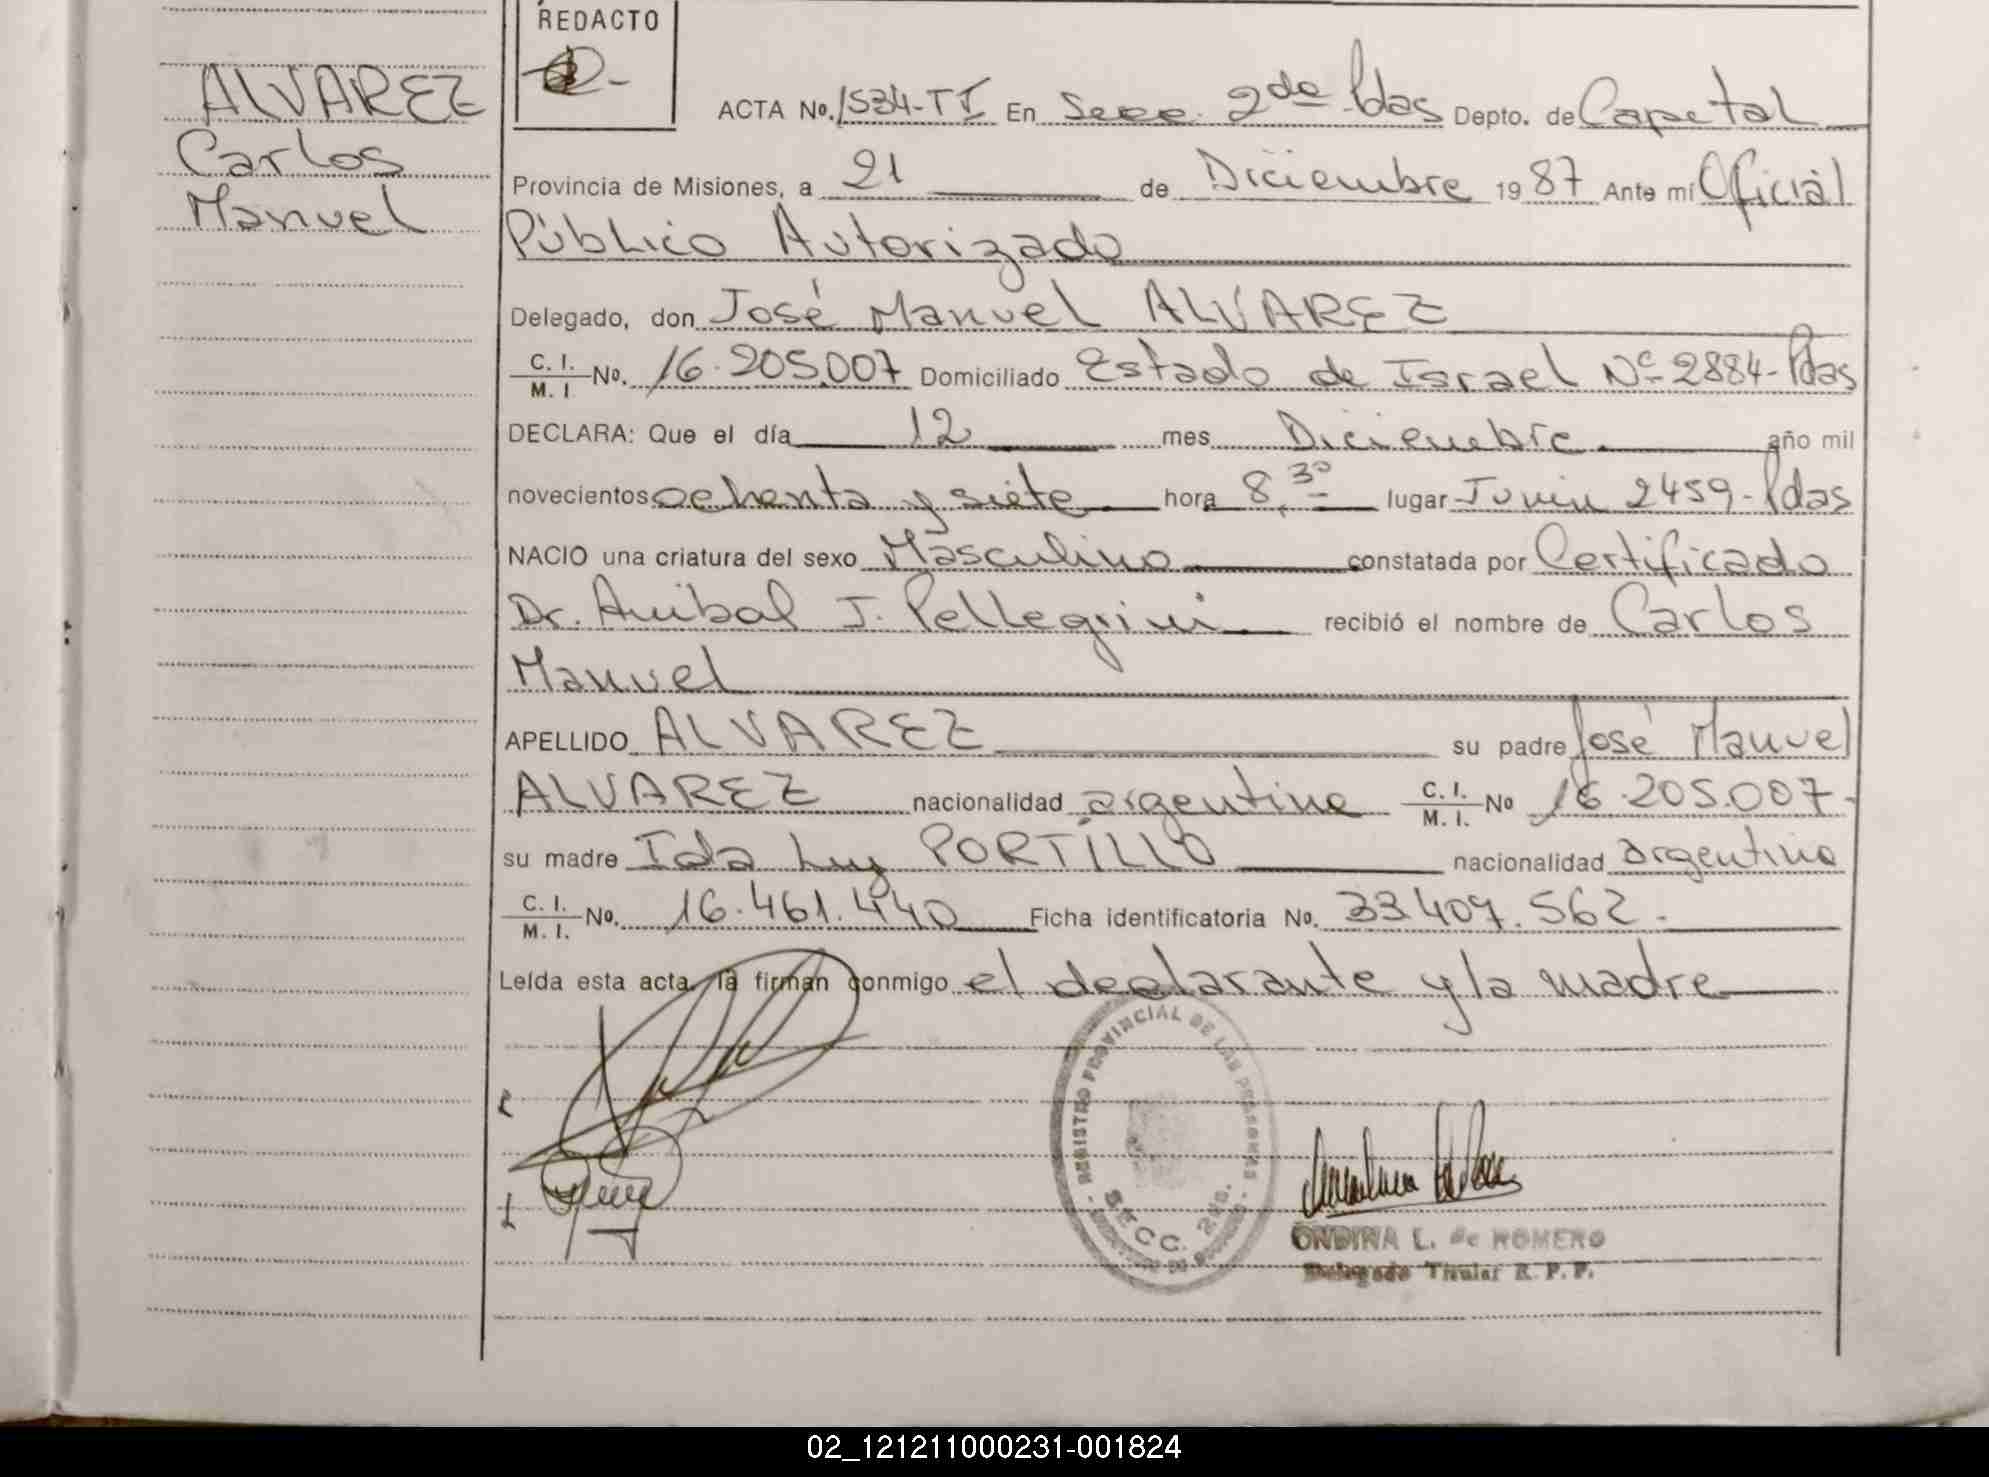 REDACTO
ALVAREZ
Carlos
Manuel
ACTA No. 1534-TI En Secc. 2da Pdas Depto. de Capital
Provincia de Misiones, a 21 de Diciembre 1987 Ante mí Oficial
Público Autorizado
Delegado, don José Manuel ALVAREZ
C. I. / M. I. No. 16.205.007 Domiciliado Estado de Israel Nº 2884-Pdas
DECLARA: Que el día 12 mes Diciembre año mil
novecientos ochenta y siete hora 8,30 lugar Junin 2459-Pdas
NACIO una criatura del sexo Masculino constatada por Certificado
Dr. Anibal J. Pellegrini recibió el nombre de Carlos
Manuel
APELLIDO ALVAREZ su padre José Manuel
ALVAREZ nacionalidad argentina C. I. / M. I. No 16.205.007-
su madre Ida Luz PORTILLO nacionalidad argentina
C. I. / M. I. No. 16.461.440 Ficha identificatoria No. 33.407.562.
Leída esta acta, la firman conmigo el declarante y la madre
REGISTRO PROVINCIAL DE LAS PERSONAS
SECC. 2da.
ONDINA L. de ROMERO
Delegada Titular R. P. P.
02_121211000231-001824